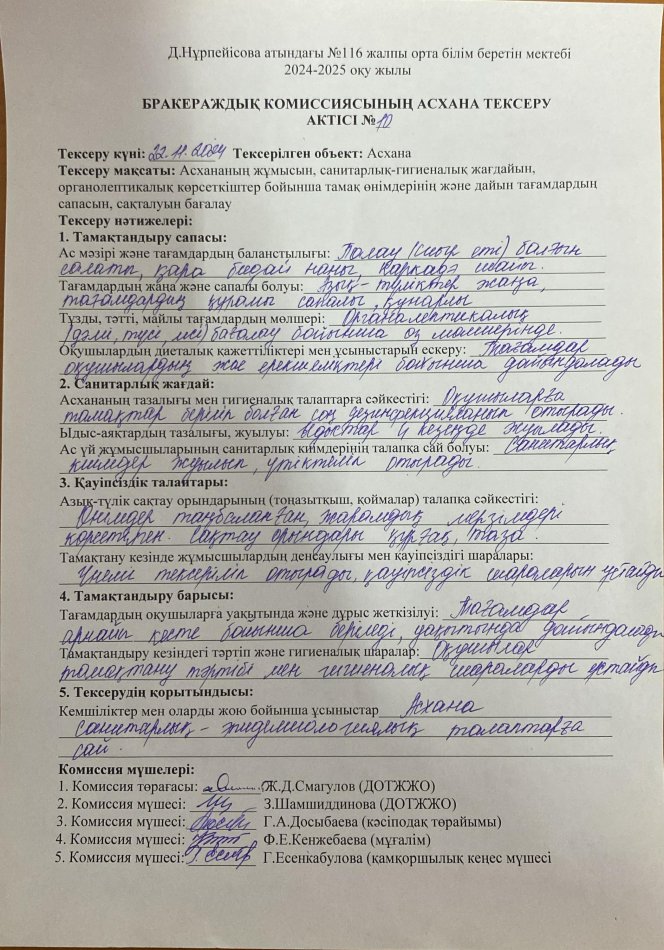 Д.Нұрпейісова атындағы №116 жалпы орта білім беретін мектебі
2024-2025 оқу жылы
БРАКЕРАЖДЫҚ КОМИССИЯСЫНЫҢ АСХАНА ТЕКСЕРУ
АКТІСІ №10
Тексеру күні: 22.11.2024 Тексерілген объект: Асхана
Тексеру мақсаты: Асхананың жұмысын, санитарлық-гигиеналық жағдайын,
органолептикалық көрсеткіштер бойынша тамақ өнімдерінің және дайын тағамдардың
сапасын, сақталуын бағалау
Тексеру нәтижелері:
1. Тамақтандыру сапасы:
Ас мәзірі және тағамдардың баланстылығы: Палау (сиыр еті) балғын
салаты, қара бидай наны, каркадэ шайы.
Тағамдардың жаңа және сапалы болуы: Азық-түліктер жаңа,
тағамдардың құрамы сапалы, құнарлы
Тұзды, тәтті, майлы тағамдардың мөлшері: Органалептикалық
(дәмі, түсі, исі) бағалау бойынша өз мөлшерінде.
Оқушылардың диеталық қажеттіліктері мен ұсыныстарын ескеру: Тағамдар
оқушылардың жас ерекшеліктері бойынша дайындалады
2. Санитарлық жағдай:
Асхананың тазалығы мен гигиеналық талаптарға сәйкестігі: Оқушыларға
тамақтар беріліп болған соң дезинфекцияланып отырады.
Ыдыс-аяқтардың тазалығы, жуылуы: Ыдыстар 4 кезеңде жуылады.
Ас үй жұмысшыларының санитарлық киімдерінің талапқа сай болуы: Санитарлық
киімдер жуылып, үтіктеліп отырады.
3. Қауіпсіздік талаптары:
Азық-түлік сақтау орындарының (тоңазытқыш, қоймалар) талапқа сәйкестігі:
Өнімдер таңбаланған, жарамдық мерзімдері
көрсетілген. Сақтау орындары құрғақ, таза.
Тамақтану кезінде жұмысшылардың денсаулығы мен қауіпсіздігі шаралары:
Үнемі тексеріліп отырады, қауіпсіздік шараларын ұстайды
4. Тамақтандыру барысы:
Тағамдардың оқушыларға уақытында және дұрыс жеткізілуі: Тағамдар
арнайы кесте бойынша беріледі, уақытында дайындалады
Тамақтандыру кезіндегі тәртіп және гигиеналық шаралар: Оқушылар
тамақтану тәртібі мен гигиеналық шараларды ұстайды
5. Тексерудің қорытындысы:
Кемшіліктер мен оларды жою бойынша ұсыныстар Асхана
санитарлық-эпидемиологиялық талаптарға
сай.
Комиссия мүшелері:
1. Комиссия төрағасы: Ж.Д.Смагулов (ДОТЖЖО)
2. Комиссия мүшесі: З.Шамшиддинова (ДОТЖЖО)
3. Комиссия мүшесі: Г.А.Досыбаева (кәсіподақ төрайымы)
4. Комиссия мүшесі: Ф.Е.Кенжебаева (мұғалім)
5. Комиссия мүшесі: Г.Есенкабулова (қамқоршылық кеңес мүшесі